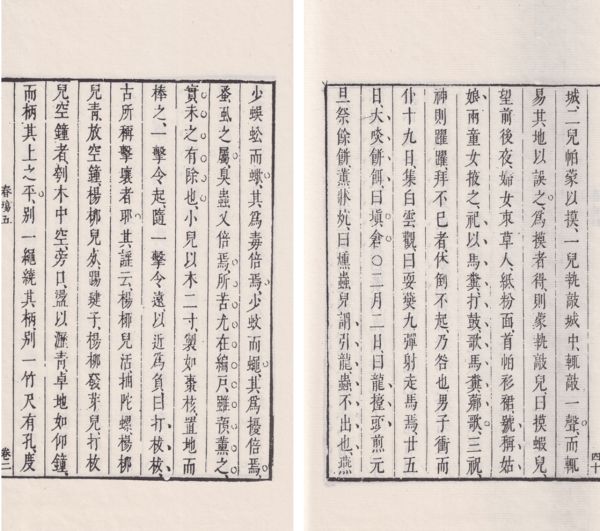 城、二兒帕蒙以摸、一兒執敲城中、輒敲一聲、而輒
易其地以誤之、爲摸者得、則蒙執敲兒、曰摸蝦兒、
望前後夜、婦女束草人、紙粉面、首帕衫裙、號稱姑
娘、兩童女掖之、祀以馬糞、打鼓歌馬糞薌歌、三祝、
神則躍躍、拜不已者、休倒不起、乃咎也、男子衝而
仆、十九日、集白雲觀、曰耍燕九、彈射走馬焉、廿五
日、大啖餅餌、曰填倉○二月二日、曰龍擡頭、煎元
旦祭餘餅、薰牀炕、曰燻蟲兒、謂引龍、蟲不出也、燕
四十
少蜈蚣而蠍、其爲毒倍焉、少蚊而蠅、其爲擾倍焉、
蚤虱之屬、臭蟲又倍焉、所苦尤在編戶、雖預薰之、
實未之有除也、小兒以木二寸、製如棗核、置地而
棒之、一擊令起、隨一擊令遠、以近爲負、曰打柭柭、
古所稱擊壤者耶、其謠云、楊柳兒活、抽陀螺、楊柳
兒青、放空鐘、楊柳兒死、踢毽子、楊柳發芽兒、打柭
兒、空鐘者、刳木中空、旁口、盪以瀝青、卓地如仰鐘、
而柄其上之平、别一繩繞其柄、别一竹尺有孔、度
春場五
卷二